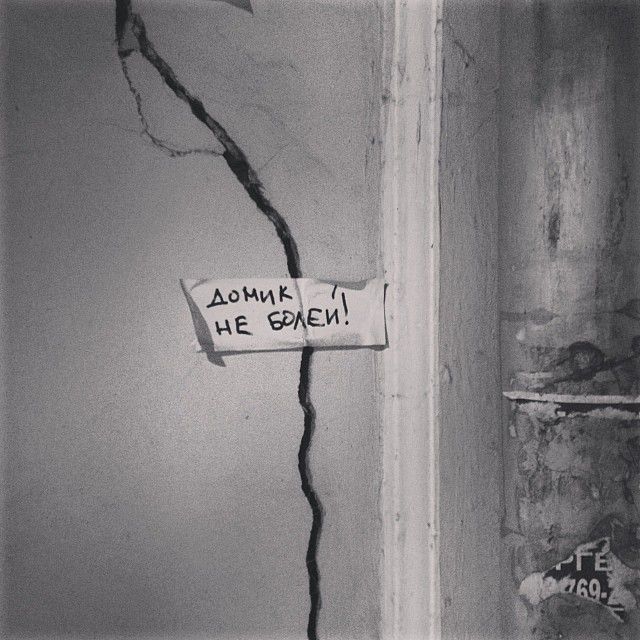 ДОМИК
НЕ БОЛЕЙ!
РГЕ
769-